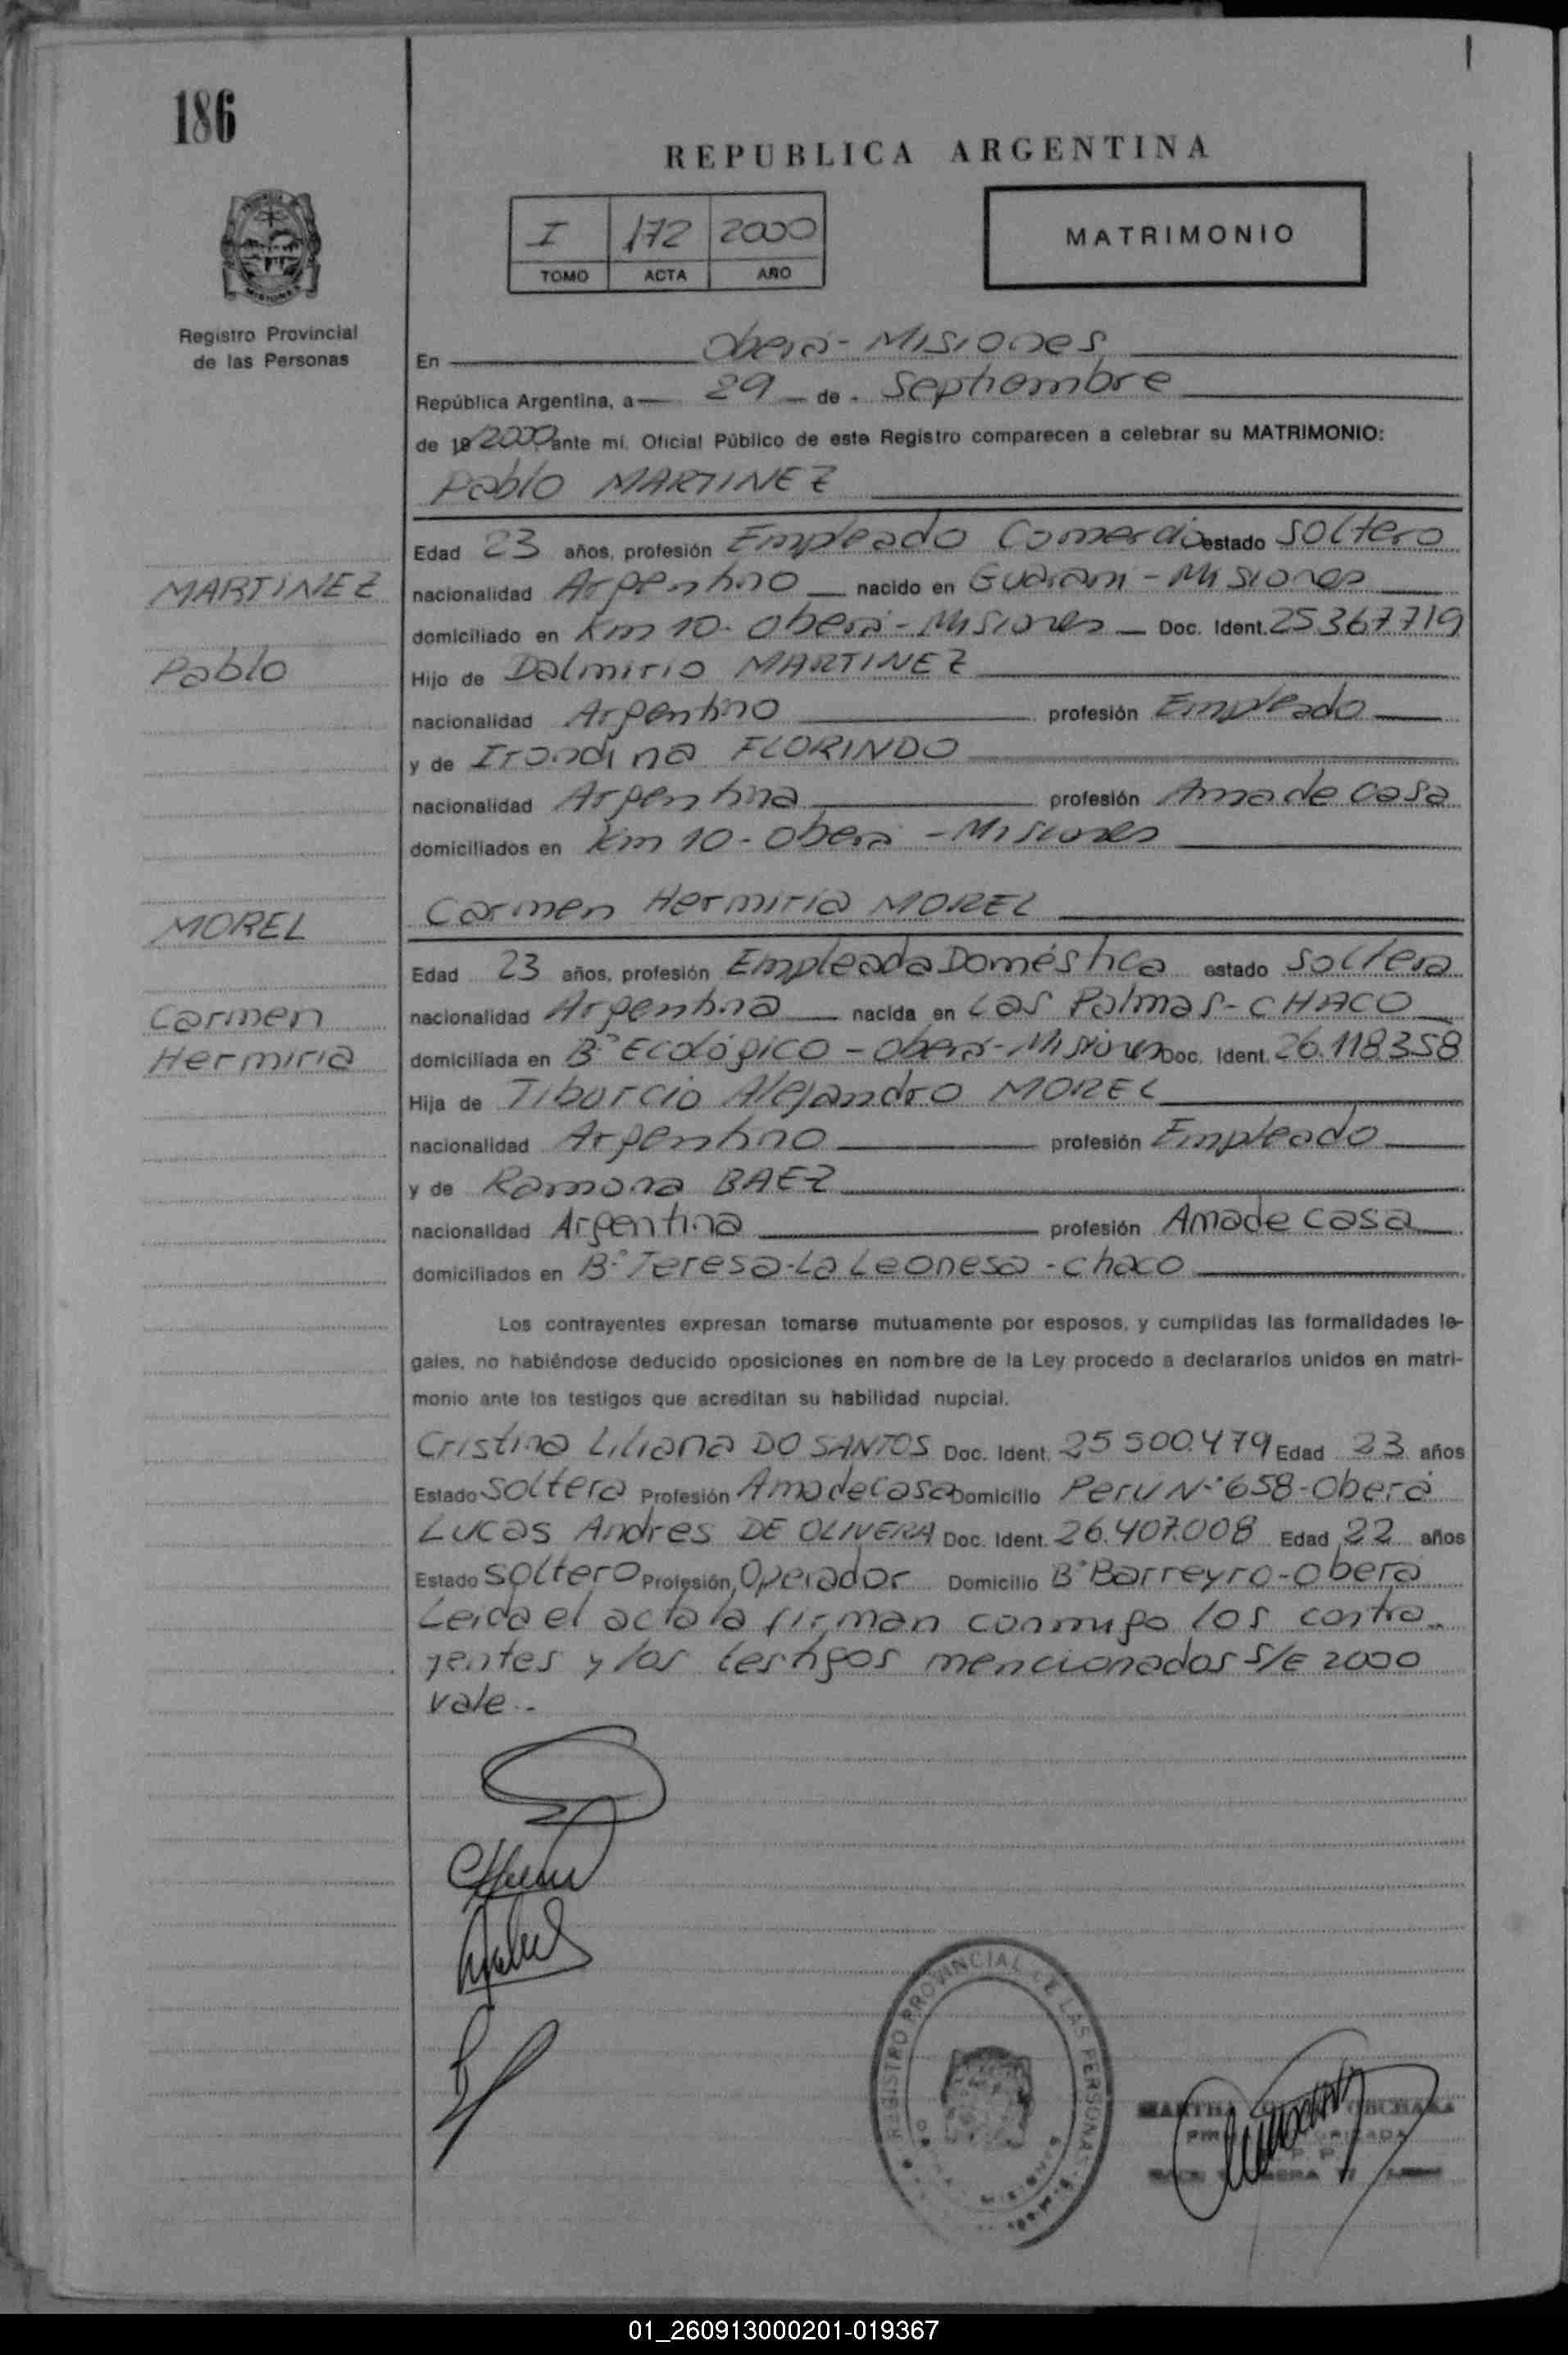 186
REPUBLICA ARGENTINA
I 172 2000
TOMO ACTA AÑO
MATRIMONIO
MISIONES
Registro Provincial
de las Personas
En Oberá - Misiones
República Argentina, a 29 de Septiembre
de 19 2000 ante mí, Oficial Público de este Registro comparecen a celebrar su MATRIMONIO:
Pablo MARTINEZ
Edad 23 años, profesión Empleado Comercio estado soltero
MARTINEZ
nacionalidad Argentino nacido en Guaraní - Misiones
domiciliado en Km 10 - Oberá - Misiones Doc. Ident. 25.367.719
Pablo
Hijo de Dalmirio MARTINEZ
nacionalidad Argentino profesión Empleado
y de Irondina FLORINDO
nacionalidad Argentina profesión Ama de casa
domiciliados en Km 10 - Oberá - Misiones
MOREL
Carmen Hermiria MOREL
Edad 23 años, profesión Empleada Doméstica estado soltera
Carmen
nacionalidad Argentina nacida en Las Palmas - CHACO
Hermiria
domiciliada en B° Ecológico - Oberá - Misiones Doc. Ident. 26.118.358
Hija de Tiburcio Alejandro MOREL
nacionalidad Argentino profesión Empleado
y de Ramona BAEZ
nacionalidad Argentina profesión Ama de casa
domiciliados en B° Teresa - La Leonesa - Chaco
Los contrayentes expresan tomarse mutuamente por esposos, y cumplidas las formalidades le-
gales, no habiéndose deducido oposiciones en nombre de la Ley procedo a declararlos unidos en matri-
monio ante los testigos que acreditan su habilidad nupcial.
Cristina Liliana DO SANTOS Doc. Ident. 25 500.479 Edad 23 años
Estado soltera Profesión Ama de casa Domicilio Perú N° 658 - Oberá
Lucas Andres DE OLIVERA Doc. Ident. 26.407.008 Edad 22 años
Estado soltero Profesión Operador Domicilio B° Barreyro - Oberá
Leida el acta la firman conmigo los contra-
yentes y los testigos mencionados S/E 2000
vale..
REGISTRO PROVINCIAL DE LAS PERSONAS
MARTHA
01_260913000201-019367